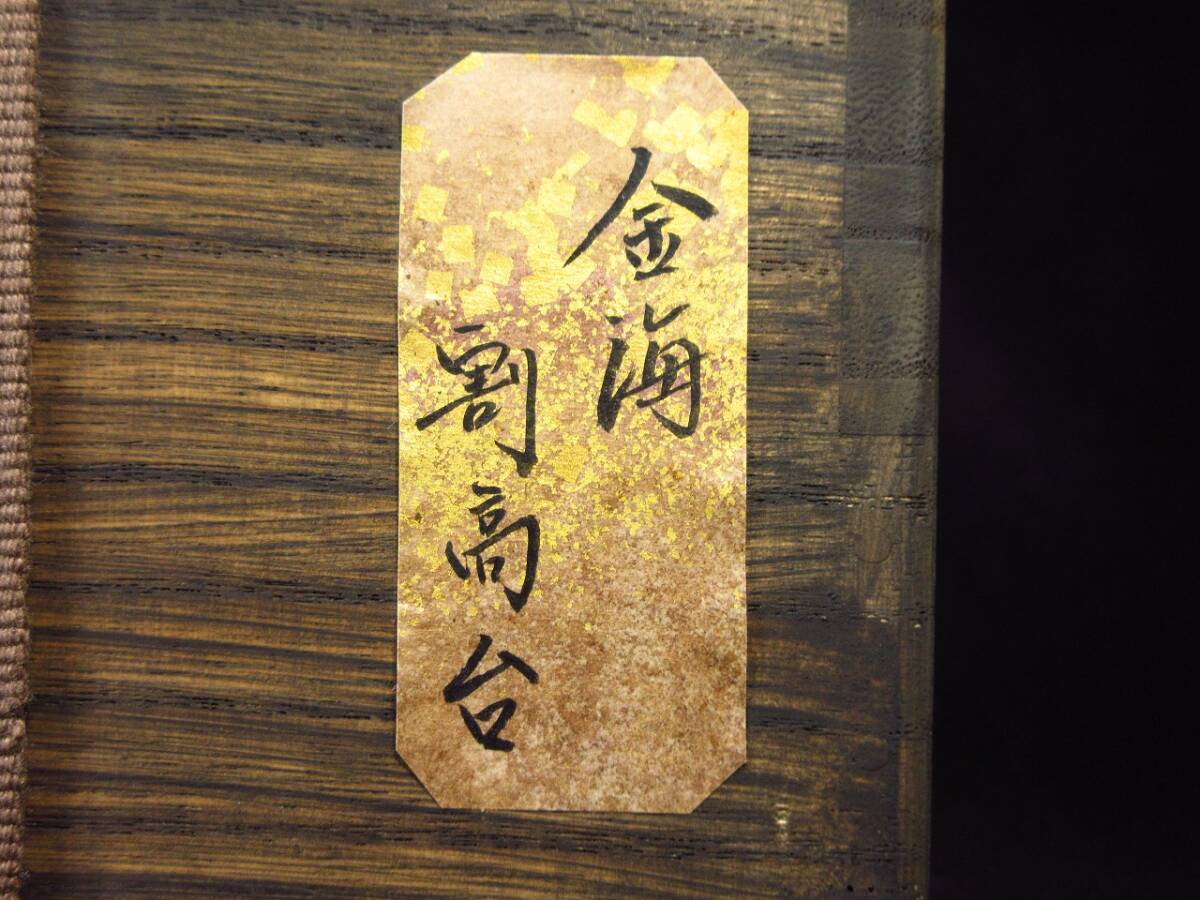 金海
割高台